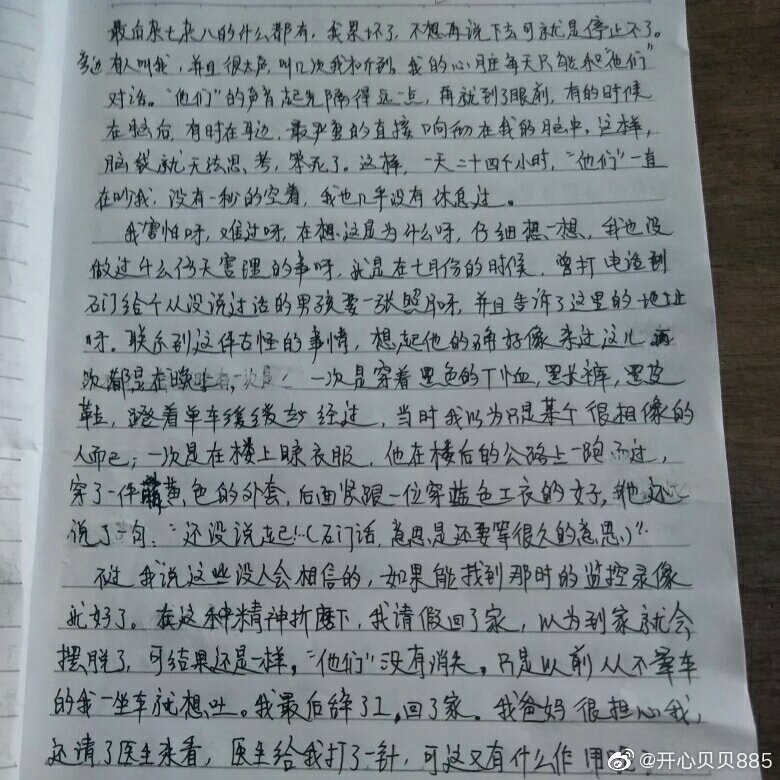 最后杂七杂八的什么都有，我累坏了，不想再说下去可就是停止不了。
旁边有人叫我，并且很大声，叫几次我才听到。我的心脏每天只能和“他们”
对话。“他们”的声音起先隔得远一点，再就到了眼前，有的时候
在脑后，有时在耳边，最严重的直接响彻在我的脑中。这样，
脑袋就无法思考，笨死了。这样，一天二十四个小时，“他们”一直
在吵我，没有一秒的空着，我也几乎没有休息过。
我害怕呀，难过呀，在想这是为什么呀，仔细想一想，我也没
做过什么伤天害理的事呀，就是在七月份的时候，曾打电话到
石门给个从没说过话的男孩要一张照片呀，并且告诉了这里的地址
呀。联系到这件古怪的事情，想起他的确好像来过这儿两
次都是在晚上，一次是穿着黑色的T恤，黑长裤，黑皮
鞋，蹬着单车缓缓地经过，当时我以为只是某个很相像的
人而已；一次是在楼上晾衣服，他在楼后的公路上一跑而过，
穿了一件黄色的外套，后面紧跟一位穿蓝色工衣的女子，她还
说了一句：“还没说起！（石门话，意思是还要等很久的意思）”
不过我说这些没人会相信的，如果能找到那时的监控录像
就好了。在这种精神折磨下，我请假回了家，以为到家就会
摆脱了，可结果还是一样。“他们”没有消失。只是以前从不晕车
的我一坐车就想吐。我最后辞了工，回了家。我爸妈很担心我，
还请了医生来看，医生给我打了一针，可这又有什么作用
@开心贝贝885